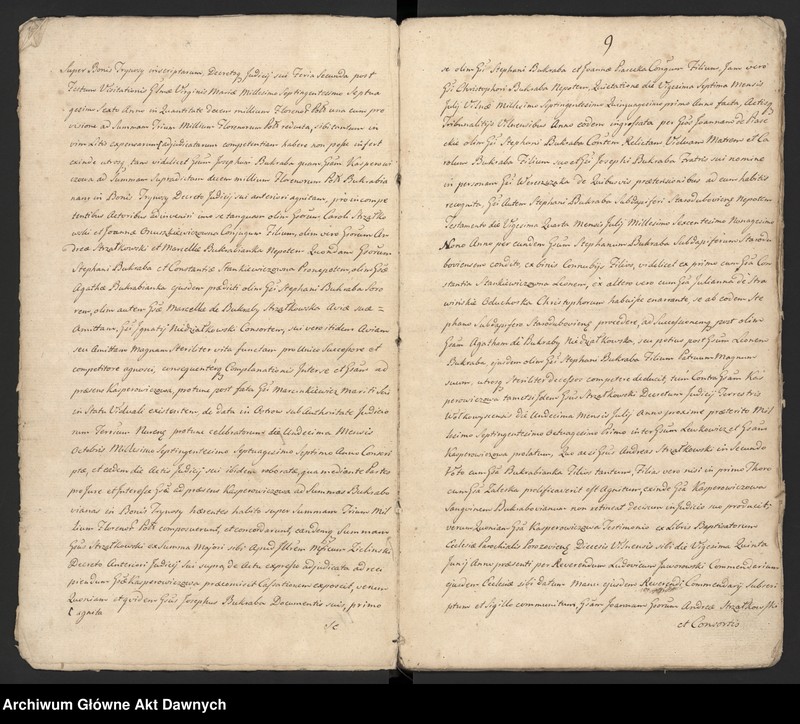 Super Bonis Trynosy inscriptarum, Decretoq Judicij sui Feria Secunda post
Festum Visitationis Glmae Virginis Mariae Millesimo Septingentesimo Septua
gesimo Sexto Anno in Quantitate decem millium Florenor Polt una cum pro
visione ad Summam Trium Millium Florenorum Polt reducta, sibi tantum in
vim Litis expensarum adjudicatarum competentiam habere non posse infert
exinde utrosq tam videlicet Gsum Josephum Bukraba quam Gsam Kasperowi
czowa ad Summam Supradictam decem millium Florenorum Polt Bukrabia
nam in Bonis Trynosy Decreto Judicij sui anteriori agnitam, pro incompe
tentibus Actoribus adinveniri imo se tanquam olim Gsorum Caroli Strzałko
wski et Joannae Onuszkiewiczowna Conjugum Filium, olim vero Gsorum An
dreae Strzałkowski et Marcellae Bukrabianka Nepotem, Quondam Gsorum
Stephani Bukraba et Constantiae Stankiewiczowna Pronepotem, olim Gsae
Agathae Bukrabianka ejusdem praedicti olim Gsi Stephani Bukraba Soro
rem, olim autem Gsae Marcellae de Bukraby Strzałkowska Aviae suae =
Amittam, Gsi Ignatij Niedziałkowski Consortem, sui vero itidem Aviam
seu Amittam Magnam Steriliter vita functam pro Unico Successore et
competitore agnosci, consequenterq Complanationis Inter se et Gsam ad
praesens Kasperowiczowa, protunc post fata Gsi Marcinkiewicz Mariti sui
in Statu Viduali existentem, de data in Castro sub Authoritate Judicio
rum Terrium protunc celebratorum die Undecima Mensis
Octobris Millesimo Septingentesimo Septuagesimo Septimo Anno Conscri
ptae, et eadem die Actis Judicij sui ibidem roboratae, qua mediante Partes
pro Jure et Interesse Gsae ad praesens Kasperowiczowa ad Summas Bukrabo
vianas in Bonis Trynosy haerentes habito super Summam Trium Mil
lium Florenor Polt composuerunt, et concordarunt, eandemq Summam
Gsus Strzałkowski ex Summa Majori sibi Apud Zielinski
Decreto Anteriori Judicij sui supra de Actu expresso adjudicata ad reci
piendum Gsae Kasperowiczowa praemisit Cassationem exposcit, verum
Quoniam et quidem Gsus Josephus Bukraba Documentis suis, primo
agnita
se
9
se olim Gsi Stephani Bukraba et Joannae Piasecka Conjgum Filium, Jam vero
Gsi Christophori Bukraba Nepotem, Quietatione die Vigesima Septima Mensis
Julij Vilnae Millesimo Septingentesimo Quinquagesimo primo Anno facta, Actisq
Tribunalitijs Vilnensibus Anno eodem ingrossata per Gsos Joannam de Piase
ckie olim Gsi Stephani Bukraba Contem Relictam Viduam Matrem et Ca
rolum Bukraba Filium suo et Gsi Josephi Bukraba Fratris sui nomine
in personam Gsi Wereszczaka de Quibusvis praetensionibus ad eum habitis
recognita, Gsi autem Stephani Bukraba Subdapiferi Starodubovien Nepotem
Testamento die Vigesima Quarta Mensis Julij Millesimo Sexcentesimo Nonagesimo
Nono Anno per eundem Gsum Stephanum Bukraba Subdapiferum Starodu
boviensem condito, ex binis Connubijs Filios, videlicet ex primo cum Gsa Con
stantia Stankiewiczowna Leonem, ex altero vero cum Gsa Julianna de Stra
wińskie Oduchowska Christophorum habuisse enarrante, se ab eodem Ste
phano Subdapifero Starodubovien procedere, ad Successionemq post olim
Gsam Agatham de Bukraby Niedziałkowska, seu potius post Gsum Leonem
Bukraba, ejusdem olim Gsi Stephani Bukraba Filium Patruum Magnum
suum, utrosq Steriliter decessos competere deducit, tum Contra Gsam Kas
perowiczowa tametsi idem Gsus Strzałkowski Decretum Judicij Terrestris
Wołkowyscensis die Undecima Mensis Julij Anno proxime praeterito Mil
lesimo Septingentesimo Octuagesimo Primo inter Gsum Lewkowicz et Gsam
Kasperowiczowa prolatum, Quo ac si Gsus Andreas Strzałkowski in Secundo
Voto cum Gsa Bukrabianka Filios tantum, Filias vero nisi in primo Thoro
cum Gsa Zaleska prolificaverit est Agnitum, exinde Gsa Kasperowiczowa
Sanguinem Bukrabovianum non retineat decisum in Judicio suo producit,
verum Quoniam Gsa Kasperowiczowa Testimonio ex Libris Baptizatorum
Ecclesiae Parochialis Porozovien Diecesis Vilnensis sibi die Vigesima Quinta
Junij Anno praesenti per Reverendum Ludovicum Jaworowski Commendarium
ejusdem Ecclesiae sibi datum Manu ejusdem Reverendi Commendarij Subscri
ptum et Sigillo communitum, Gsam Joannam Gsorum Andreae Strzałkowski
et Consortis
Archiwum Główne Akt Dawnych